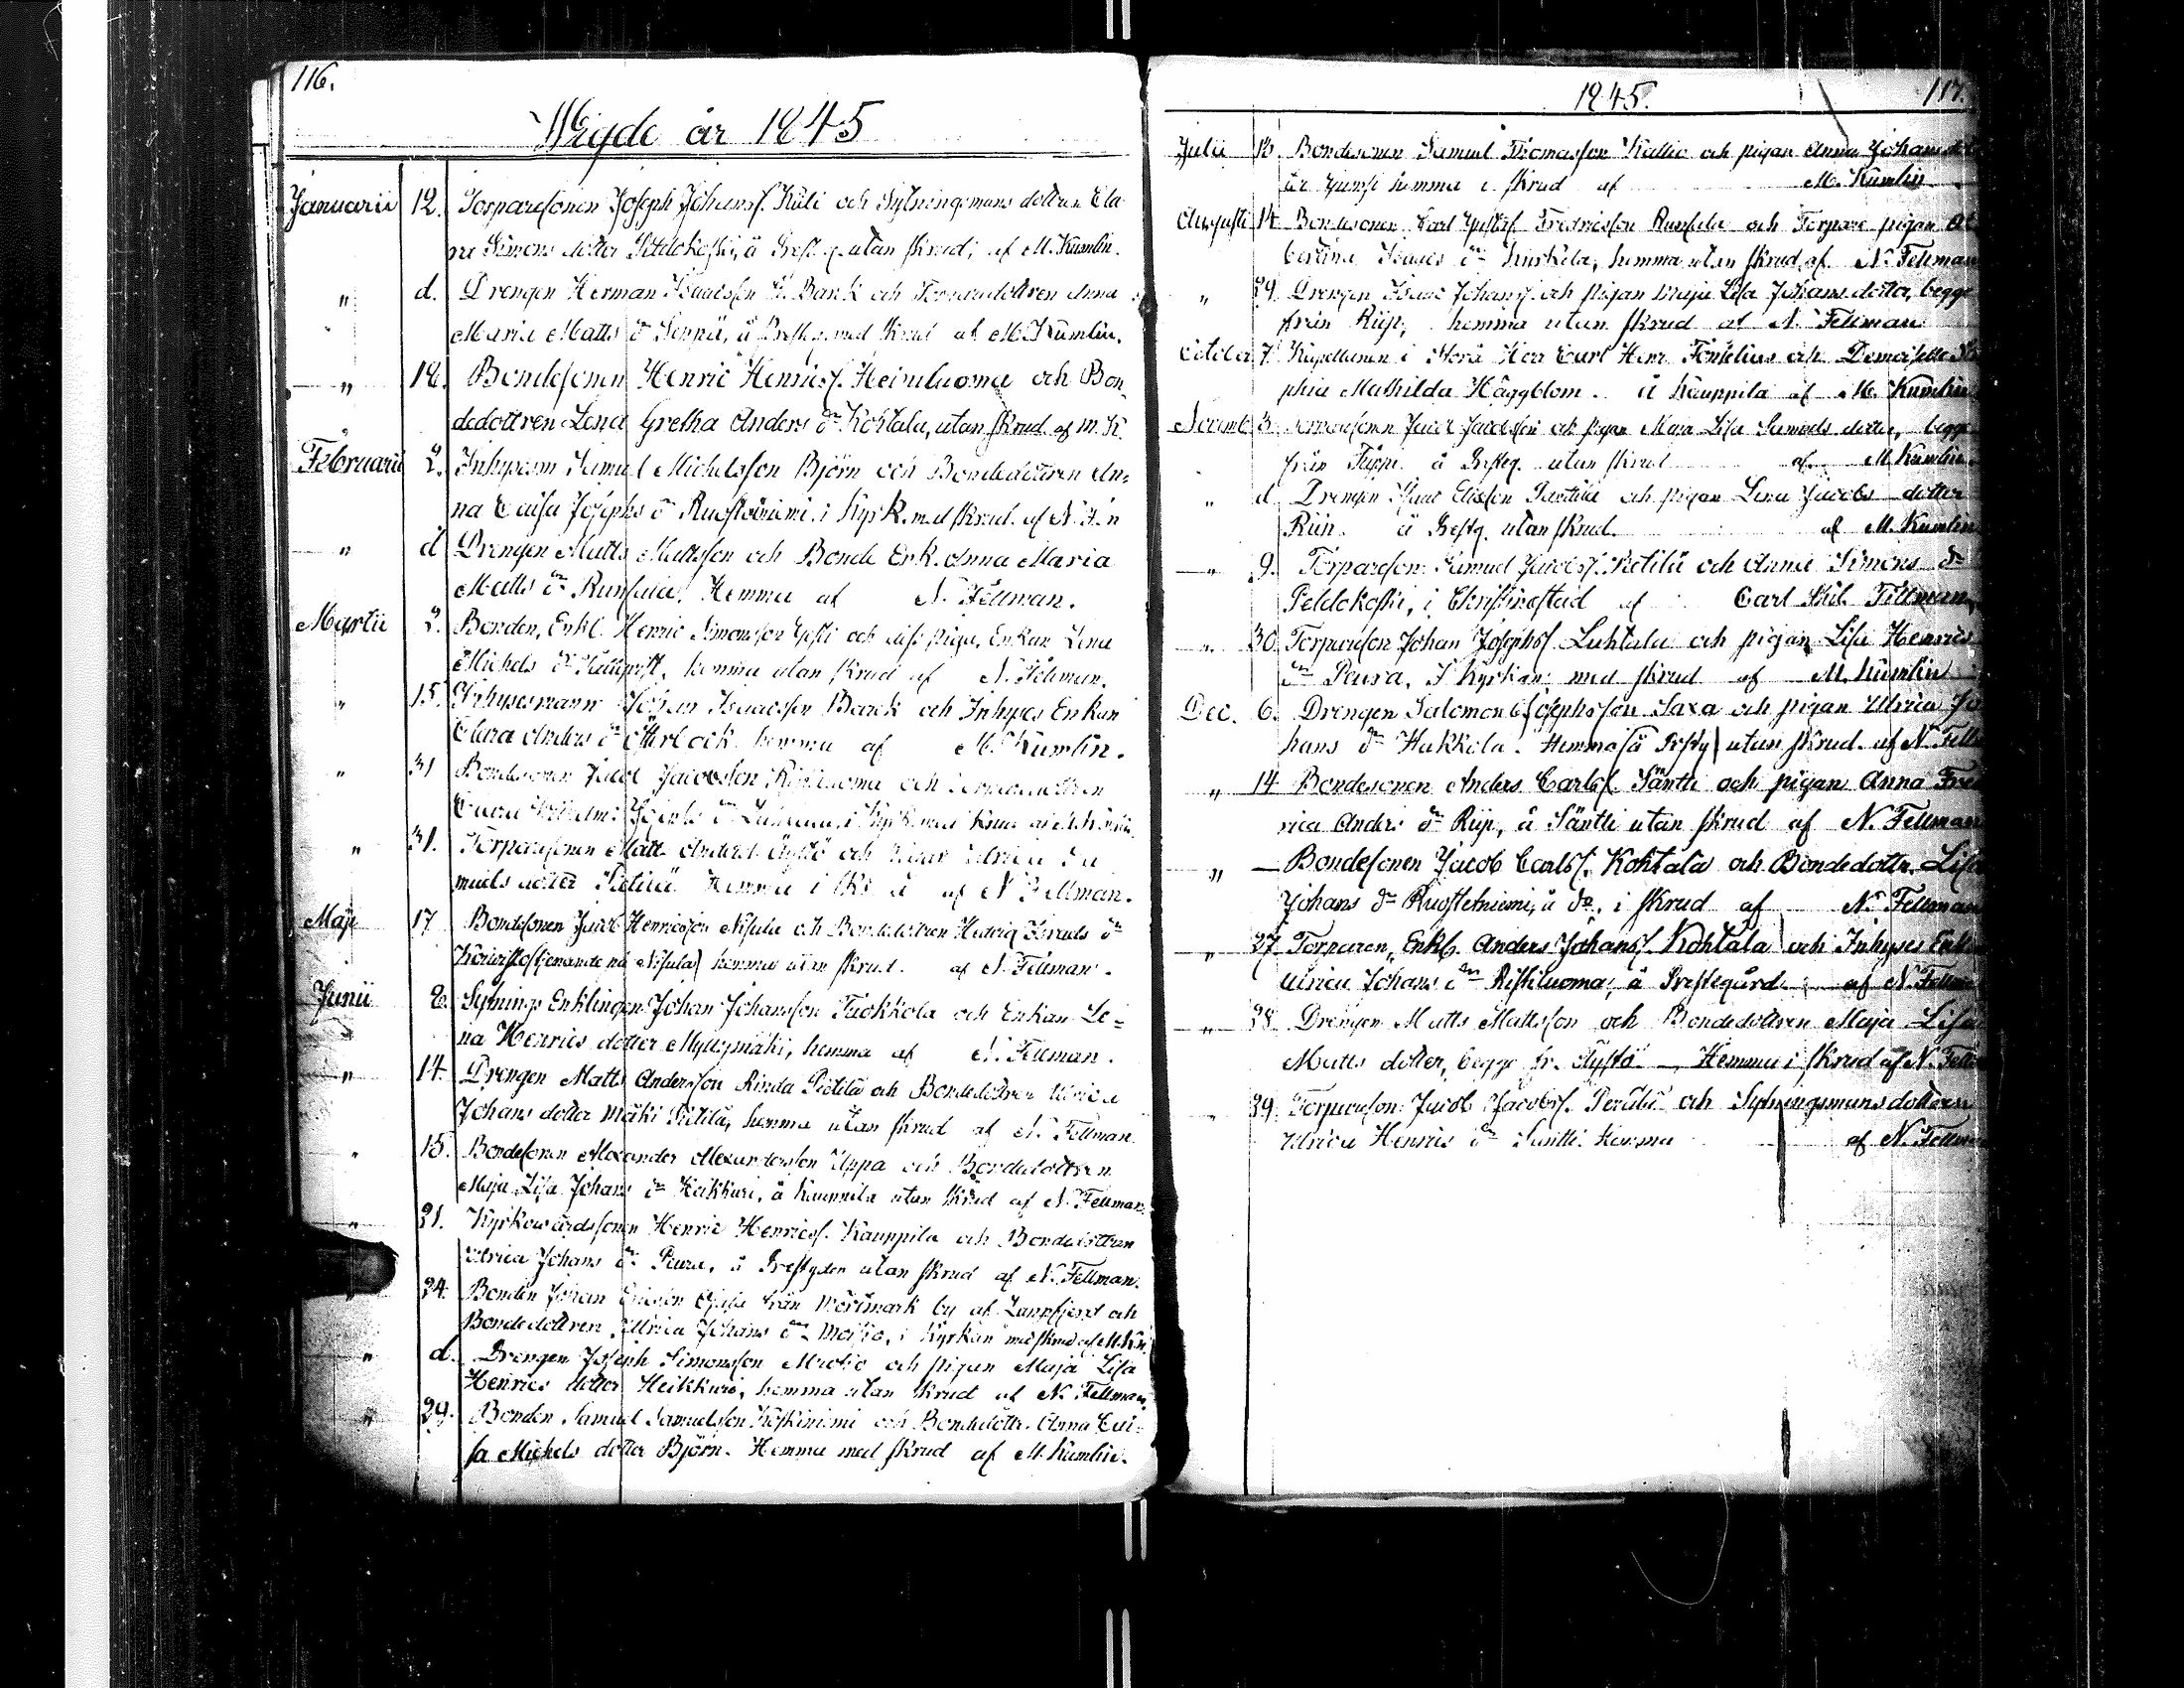 116.
Wigde år 1845
Januarii 12. Torparesonen Joseph Johans. och Sytningsmans dottren
Simons dotter Peldokoski, å Prestg. utan skrud, af M. Kumlin.
" d. Drengen Herman Isaacsson Bank och dottren Anna
Maria Matts dr Seppä, å Prestg. med skrud af M. Kumlin.
" 18. Bondesonen Henric Henrics. Heiniluoma och Bon
dedottren Lena Gretha Anders dr Kohtala, utan skrud af M. K.
Februarii 2. Inhysesm Samuel Michelsson Björn och Bondedottren An-
na Caisa Josephs d Ruostetniemi, i Kyrk. med skrud. af N. F.n
" d Drengen Matts Mattsson och Bonde Enk. Anna Maria
Matts dr Runsala. Hemma af N. Fellman.
Martii 2. Bonden, Enkl. Henric Simonsson och piga, Enkan Lena
Michels dr hemma utan skrud af N. Fellman.
" 15. Inhysesmann Johan Isaacsson Back och Inhyses Enkan
Clara Anders dr Österback hemma af M. Kumlin.
" 31 Bondesonen Jacob Jacobsson och
i Kyrk. med skrud af
" 31. Torparesonen Matts Anders. och Ulrica Sa
muels dotter Pietilä Hemma i af N. Fellman.
Maji 17 Bondesonen Jacob Henricsson Nisula och Bondedottren Hedvig Israels dr
Koivisto (tjenande på Nisula) hemma utan skrud. af N. Fellman.
Junii 8. Sytnings Enklingen Johan Johansson Tuokkola och Enkan Le=
na Henrics dotter Myllymäki, hemma af N. Fellman.
" 14. Drengen Matts Andersson Rinda Pietilä och Bondedottren Ulrica
Johans dotter Mäki Pietilä, hemma utan skrud af N. Fellman.
" 15. Bondesonen Alexander Alexandersson Uppa och Bondedottren
Maja Lisa Johans dr Heikkuri, å Kauppila utan skrud af N. Fellman.
" 21. Kyrkowärdssonen Henric Henrics. Kauppila och Bondedottren
Ulrica Johans dr Peura, å Prestgden utan skrud af N. Fellman.
" 24. Bonden Johan Ericsson från Mörtmark by af Lappfjerd och
Bondedottren Ulrica Johans dr i Kyrkan med skrud af M. K.n
" d. Drengen Joseph Simonsson och pigan Maja Lisa
Henrics dotter Heikkuri, hemma utan skrud af N. Fellman.
" 29. Bonden Samuel Samuelsson Koskiniemi och Bondedottr. Anna Cai-
sa Michels dotter Björn. Hemma med skrud af M. Kumlin.
1845. 117.
Julii 13. Bondesonen Samuel Thomasson Kallio och pigan Anna Johans
hemma i skrud af M. Kumlin
Augusti 14 Bondesonen Carl Gustaf Fredricsson Runsala och Torpare pigan Al
bertina Isaacs dr Kurkela, hemma utan skrud, af N. Fellman
" 29. Drengen Isaac Johans. och pigan Maja Lisa Johans dotter, begge
från Riip, hemma utan skrud af N. Fellman
October 7. Kapellanen i Storå Herr Carl Henr. Fontelius och Demoiselle So
phia Mathilda Häggblom. å Kauppila af M. Kumlin
Novemb. 3. Jacob Jacobsson och pigan Maria Lisa Samuels dotter, begge
från å Prestg. utan skrud af M. Kumlin.
" d. Drengen Isaac Eliasson Pentilä och pigan Lena Jacobs dotter
Riip. å Prestg. utan skrud. af M. Kumlin
" 9. Torpareson: Samuel Jacobs. Pietilä och Anna Simons dr
Peldokoski, i Christinestad af Carl Fellman,
" 30. Torpareson Johan Josephs. Luhtala och pigan Lisa Henrics
dr Peura, I Kyrkan: med skrud af M. Kumlin
Dec. 6. Drengen Salomon Josephsson Saxa och pigan Ulrica Jo
hans dr Hakkola. Hemma (å Prestg) utan skrud. af N. Fell
" 14 Bondesonen Anders Carls. Säntti och pigan Anna Fred
rica Anders dr Riip, å Säntti utan skrud af N. Fellman
" — Bondesonen Jacob Carls. Kohtala och Bondedottr. Lisa
Johans dr Ruostetniemi, å do. i skrud af N. Fellman
" 27 Torparen, Enkl. Anders Johans. Kohtala och Inhyses Enk
Ulrica Johans dr Ristiluoma, å Prestegård af N. Fellm
" 28 Drengen Matts Mattsson och Bondedottren Maja Lisa
Matts dotter, begge fr. Äystö — Hemma i skrud af N. Fell
" 29. Torpareson: Jacob Jacobs. Perälä och Sytningsmans dottren
Ulrica Henrics dr Säntti. Hemma af N. Fellm